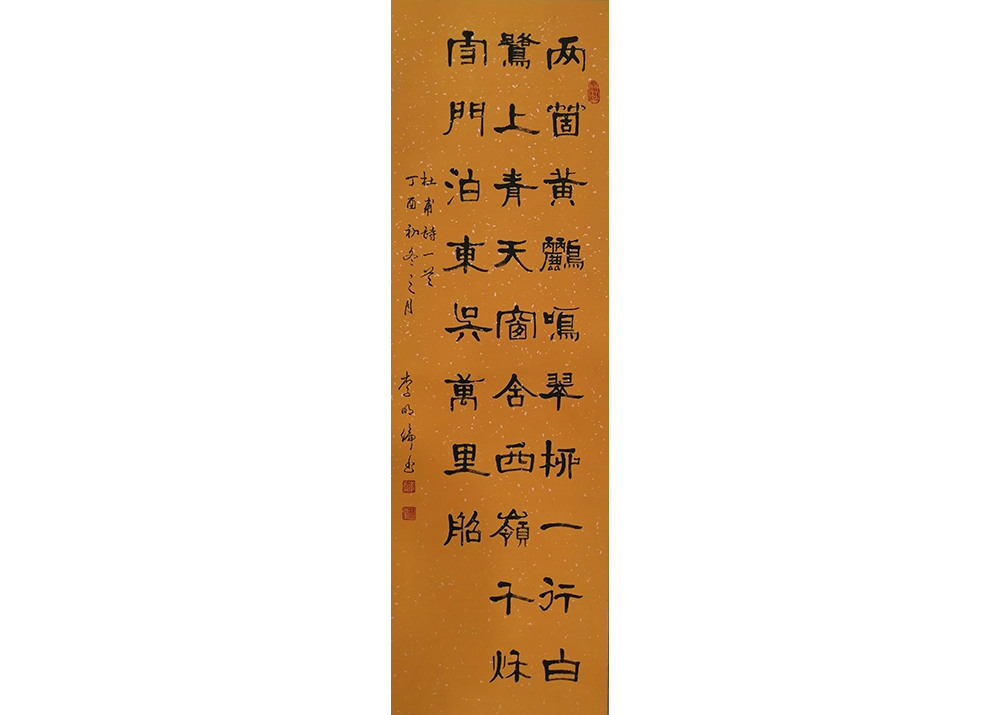 两箇黄鸝鳴翠柳一行白
鷺上青天窗含西嶺千秌
雪門泊東吳萬里船
杜甫詩一首
丁酉初冬之月 李明